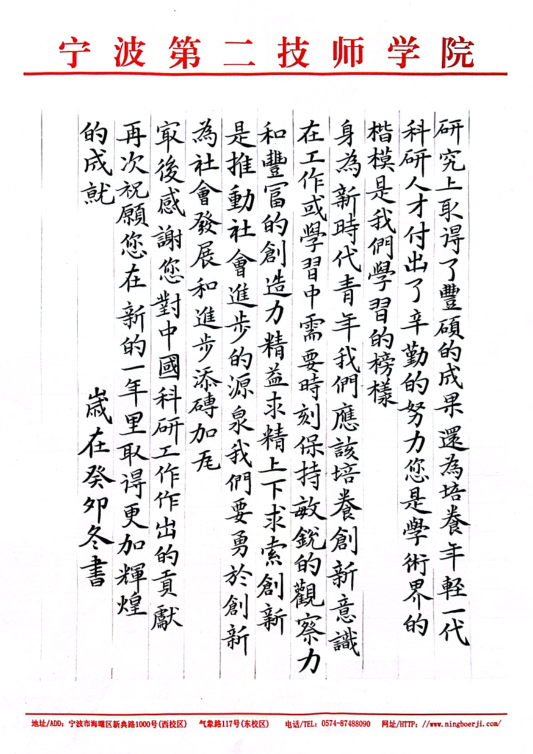 宁波第二技师学院
研究上取得了豐碩的成果還為培養年輕一代
科研人才付出了辛勤的努力您是學術界的
楷模是我們學習的榜樣
身為新時代青年我們應該培養創新意識
在工作或學習中需要時刻保持敏銳的觀察力
和豐富的創造力精益求精上下求索創新
是推動社會進步的源泉我們要勇於創新
為社會發展和進步添磚加瓦
最後感謝您對中國科研工作作出的貢獻
再次祝願您在新的一年里取得更加輝煌
的成就
歲在癸卯冬書
地址/ADD: 宁波市海曙区新典路1000号(西校区) 气象路117号(东校区) 电话/TEL: 0574-87488090 网址/HTTP: //www.ningboerji.com/